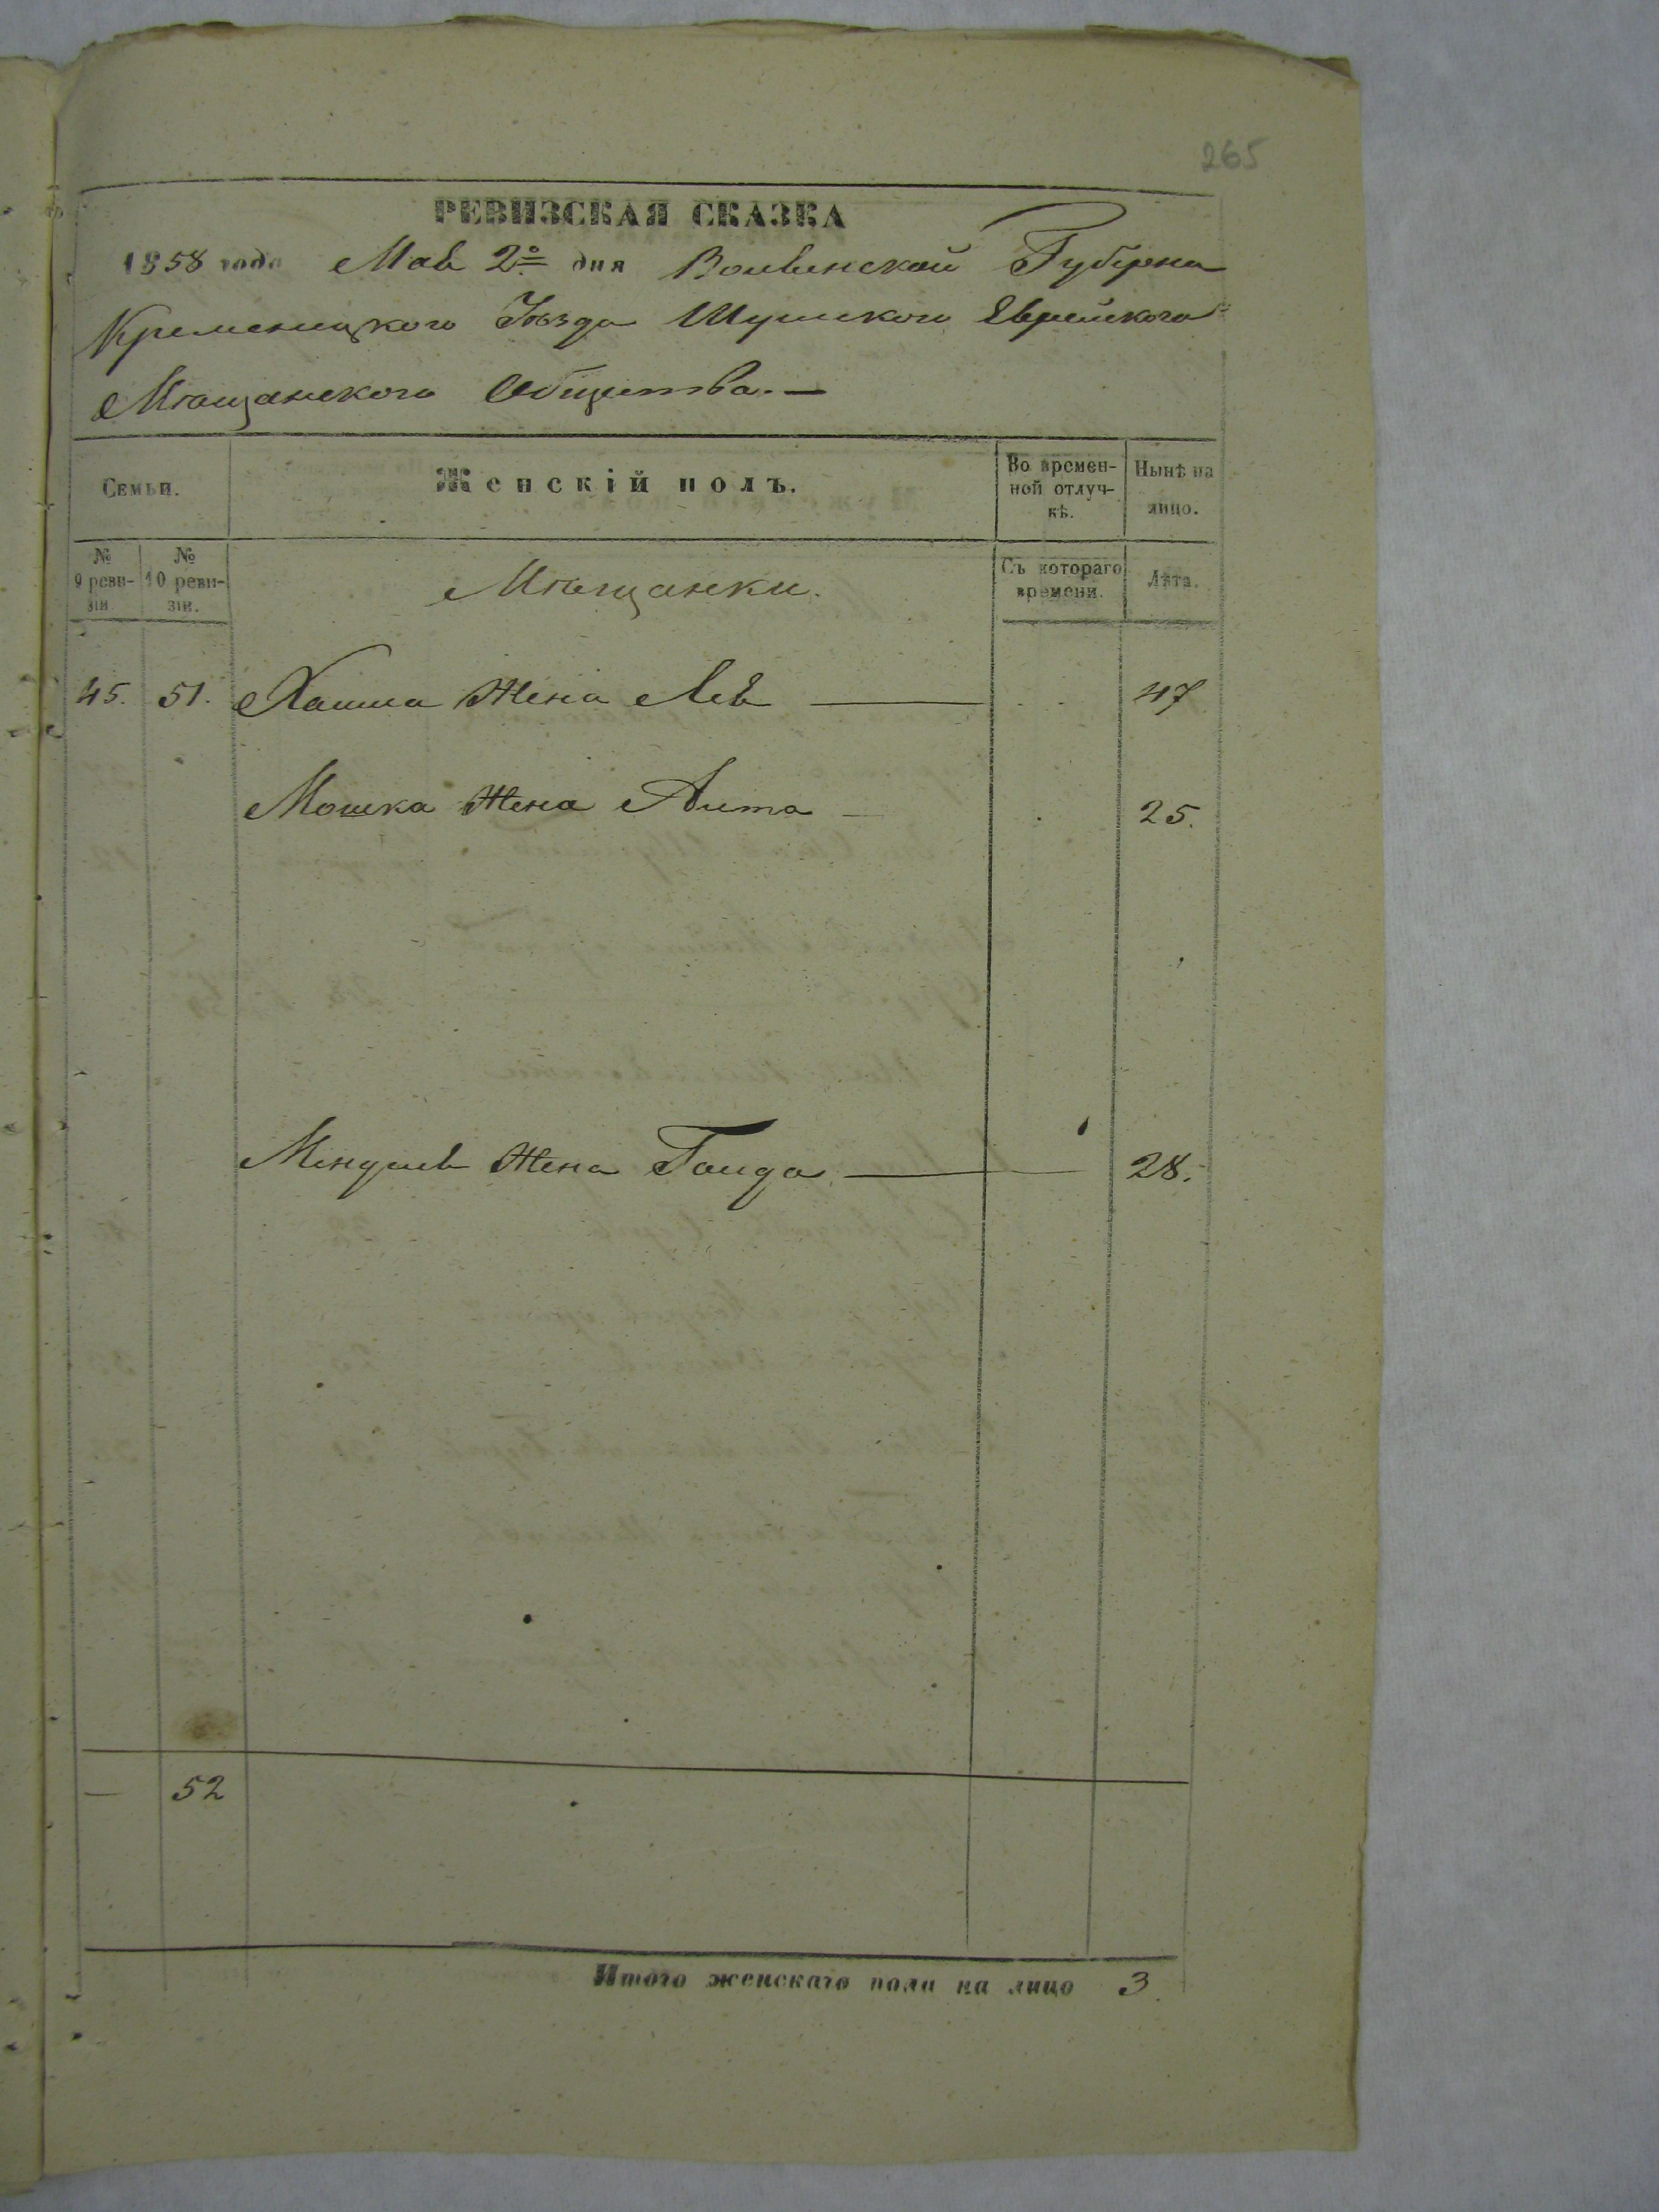 265
РЕВИЗСКАЯ СКАЗКА
1858 года Мая 2го дня Волынской Губерни
Кременецкого Уѣзда Шумскаго Еврейскаго
Мѣщанскаго Общества. —
Семьи.
Женскій полъ.
Во времен-
ной отлуч-
кѣ.
Нынѣ на
лицо.
№
9 реви-
зіи.
№
10 реви-
зіи.
Мѣщанки.
Съ котораго
времени.
Лѣта.
45. 51. жена 47
Мошка жена 25.
жена 28.
— 52
Итого женскаго пола на лицо 3.